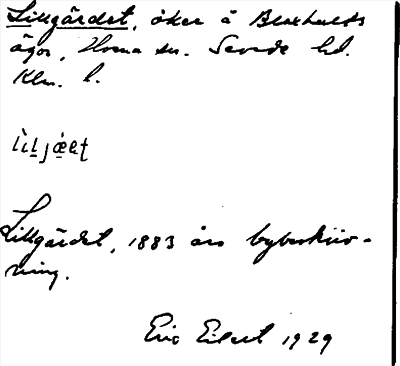 Lillgärdet, åker å Blaxhults
ägor, Horna sn. Sevede hd.
Klm. l.
Lillgärdet, 1883 års bybeskriv-
ning.
Eric Eilert 1929